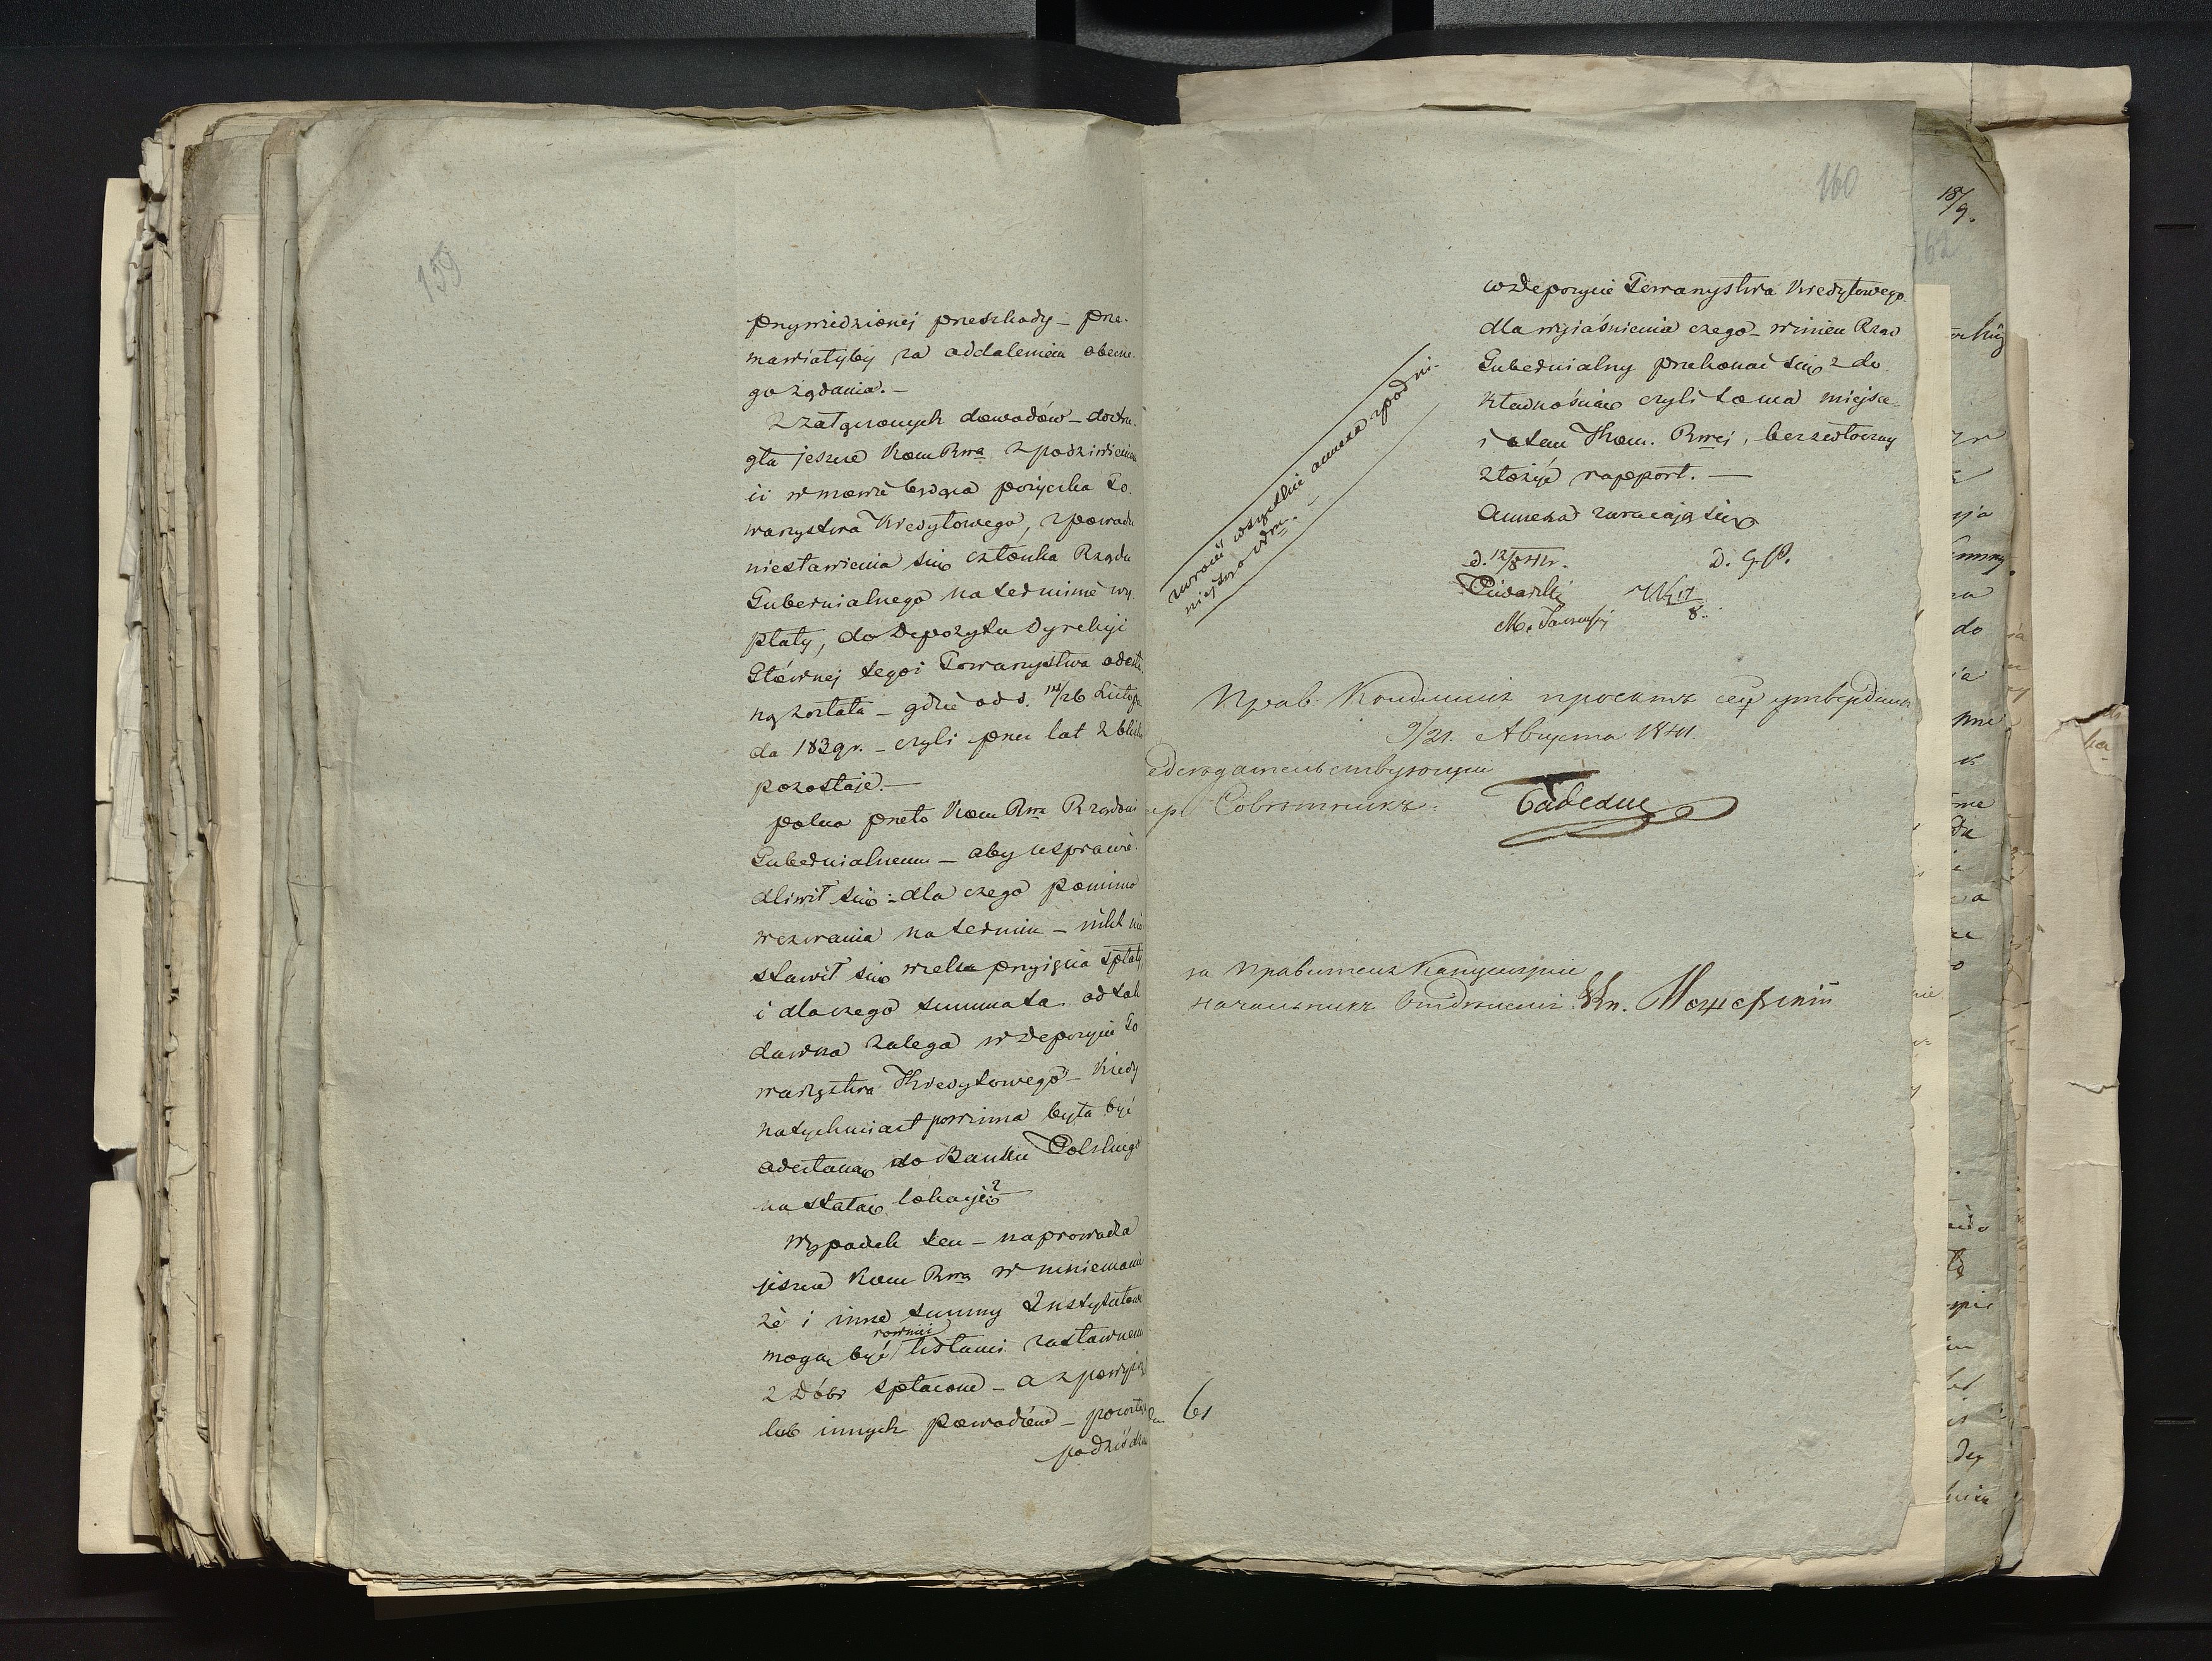 159
przywiedzionej przeszkody – prze-
mawiałyby za oddaleniem obecne-
go żądania. –
Z załączonych dowodów – dostrze-
gła jeszcze Kom Rwa z podziwieniem
iż w mowie będąca pożyczka To-
warzystwa Kredytowego, z powodu
niestawienia się członka Rządu
Gubernialnego na terminie wy-
płaty, do Depozytu Dyrekcji
Głównej tegoż Towarzystwa odesła-
ną została – gdzie od d. 14/26 Listopa
do 1839 r. – czyli przez lat 2 blisko
pozostaje. –
poleca przeto Kom Rwa Rządowi
Gubernialnemu – aby usprawie-
dliwił się: dla czego pomimo
wezwania na termin – nikt nie
stawił się w celu przyjęcia spłaty
i dla czego summa ta od tak
dawna zalega w depozycie To
warzystwa Kredytowego – kiedy
natychmiast powinna była być
odesłaną do Banku Polskiego
na stałą lokacyię?
Wypadek ten – naprowadza
jeszcze Kom Rwa w mniemanie
że i inne summy Instytutowe
mogą być równiei listami zastawnemi
z Dóbr spłacone – a z powyższ
lub innych powodów –
podziś dzień
160
w depozycie Towarzystwa Kredytowego.
dla wyjaśnienia czego – winien Rząd
Gubernialny przekonać się z do
kładnością czyli to ma miejsce –
i o tem Kom. Rwej, bezzwłoczny
złożyć rapport. –
Annexa zwracają się
d. 12/8 41 r. D. G. P.
17/8
zwrócić wszystkie annexa z pod ni-
niejszego Nru. –
Прав. Коммисія проектъ сей утвердила
9/21. Августа 1841.
едсѣдательствующій
Совѣтникъ.
за Правителя Канцеляріи
Начальникъ Отдѣленія Кн.
61
18/9.
162